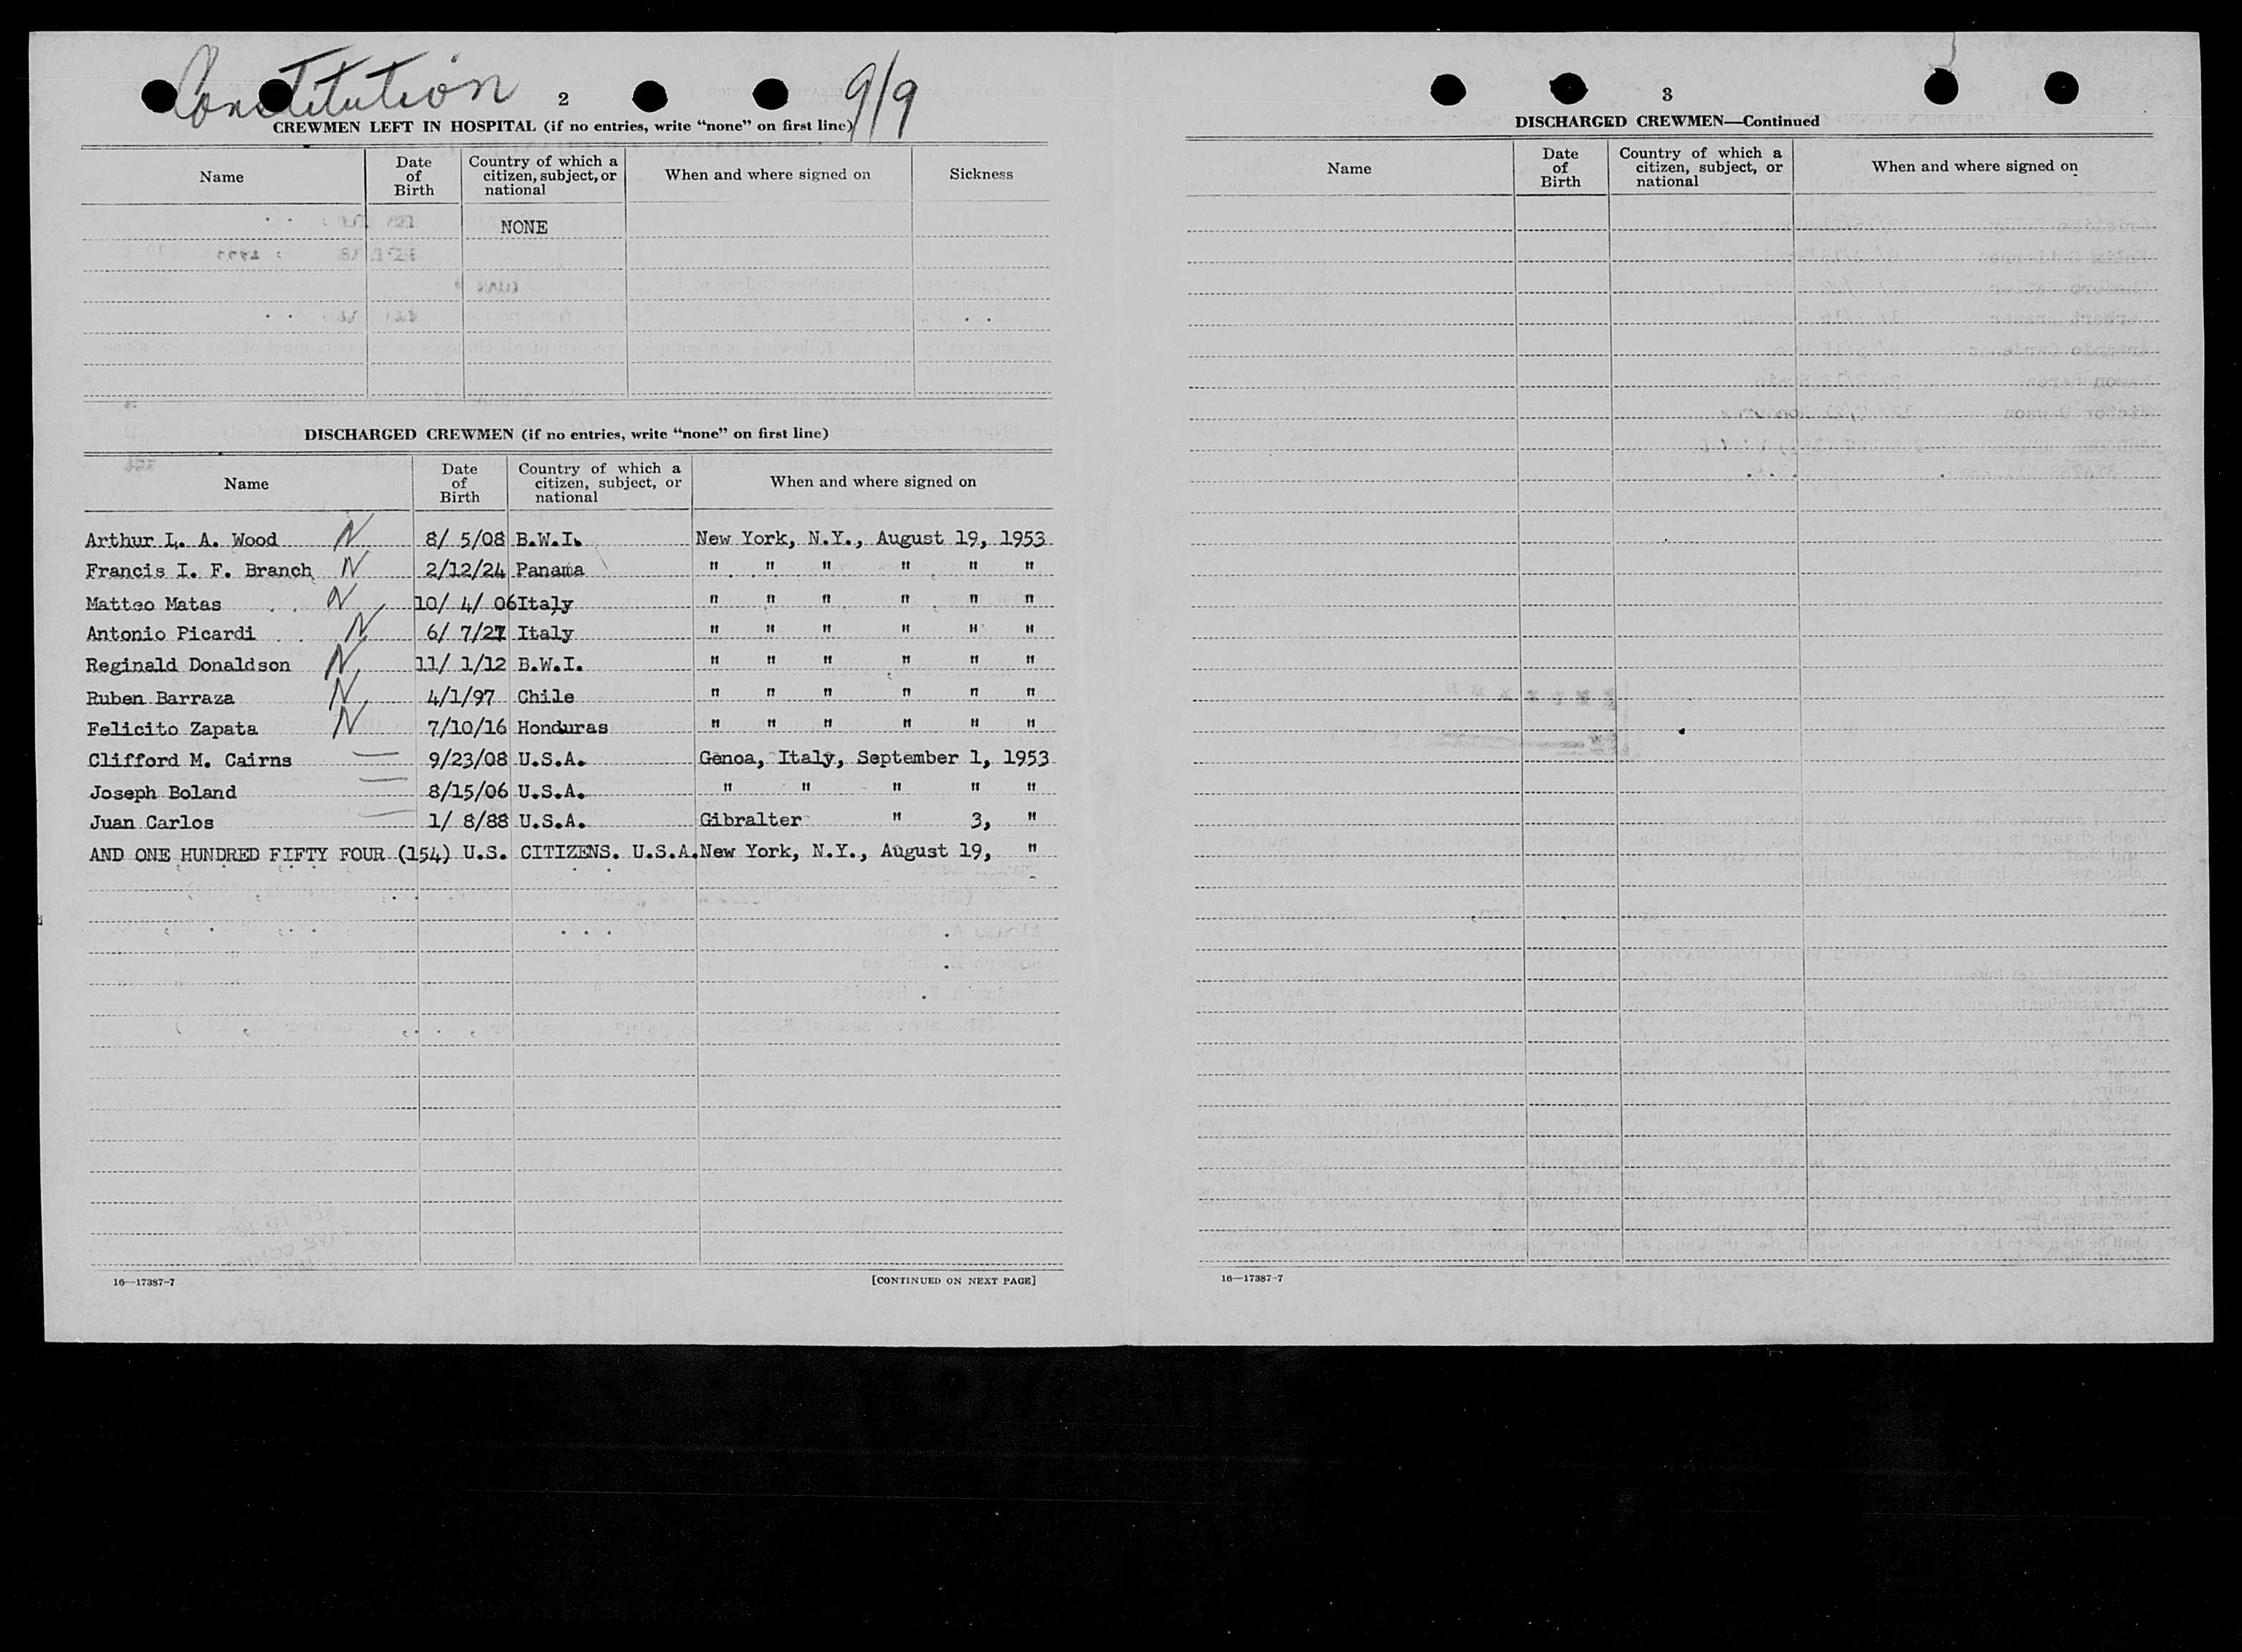 Constitution 2 9/9
CREWMEN LEFT IN HOSPITAL (if no entries, write "none" on first line)
Name Date of Birth Country of which a citizen, subject, or national When and where signed on Sickness
NONE
DISCHARGED CREWMEN (if no entries, write "none" on first line)
Name Date of Birth Country of which a citizen, subject, or national When and where signed on
Arthur L. A. Wood N 8/ 5/08 B.W.I. New York, N.Y., August 19, 1953
Francis I. F. Branch N 2/12/24 Panama " " " " " "
Matteo Matas N 10/ 4/ 06 Italy " " " " " "
Antonio Picardi N 6/ 7/27 Italy " " " " " "
Reginald Donaldson N 11/ 1/12 B.W.I. " " " " " "
Ruben Barraza N 4/1/97 Chile " " " " " "
Felicito Zapata N 7/10/16 Honduras " " " " " "
Clifford M. Cairns 9/23/08 U.S.A. Genoa, Italy, September 1, 1953
Joseph Boland 8/15/06 U.S.A. " " " " "
Juan Carlos 1/ 8/88 U.S.A. Gibralter " 3, "
AND ONE HUNDRED FIFTY FOUR (154) U.S. CITIZENS. U.S.A. New York, N.Y., August 19, "
16—17387-7 [CONTINUED ON NEXT PAGE]
3
DISCHARGED CREWMEN—Continued
Name Date of Birth Country of which a citizen, subject, or national When and where signed on
16—17387-7